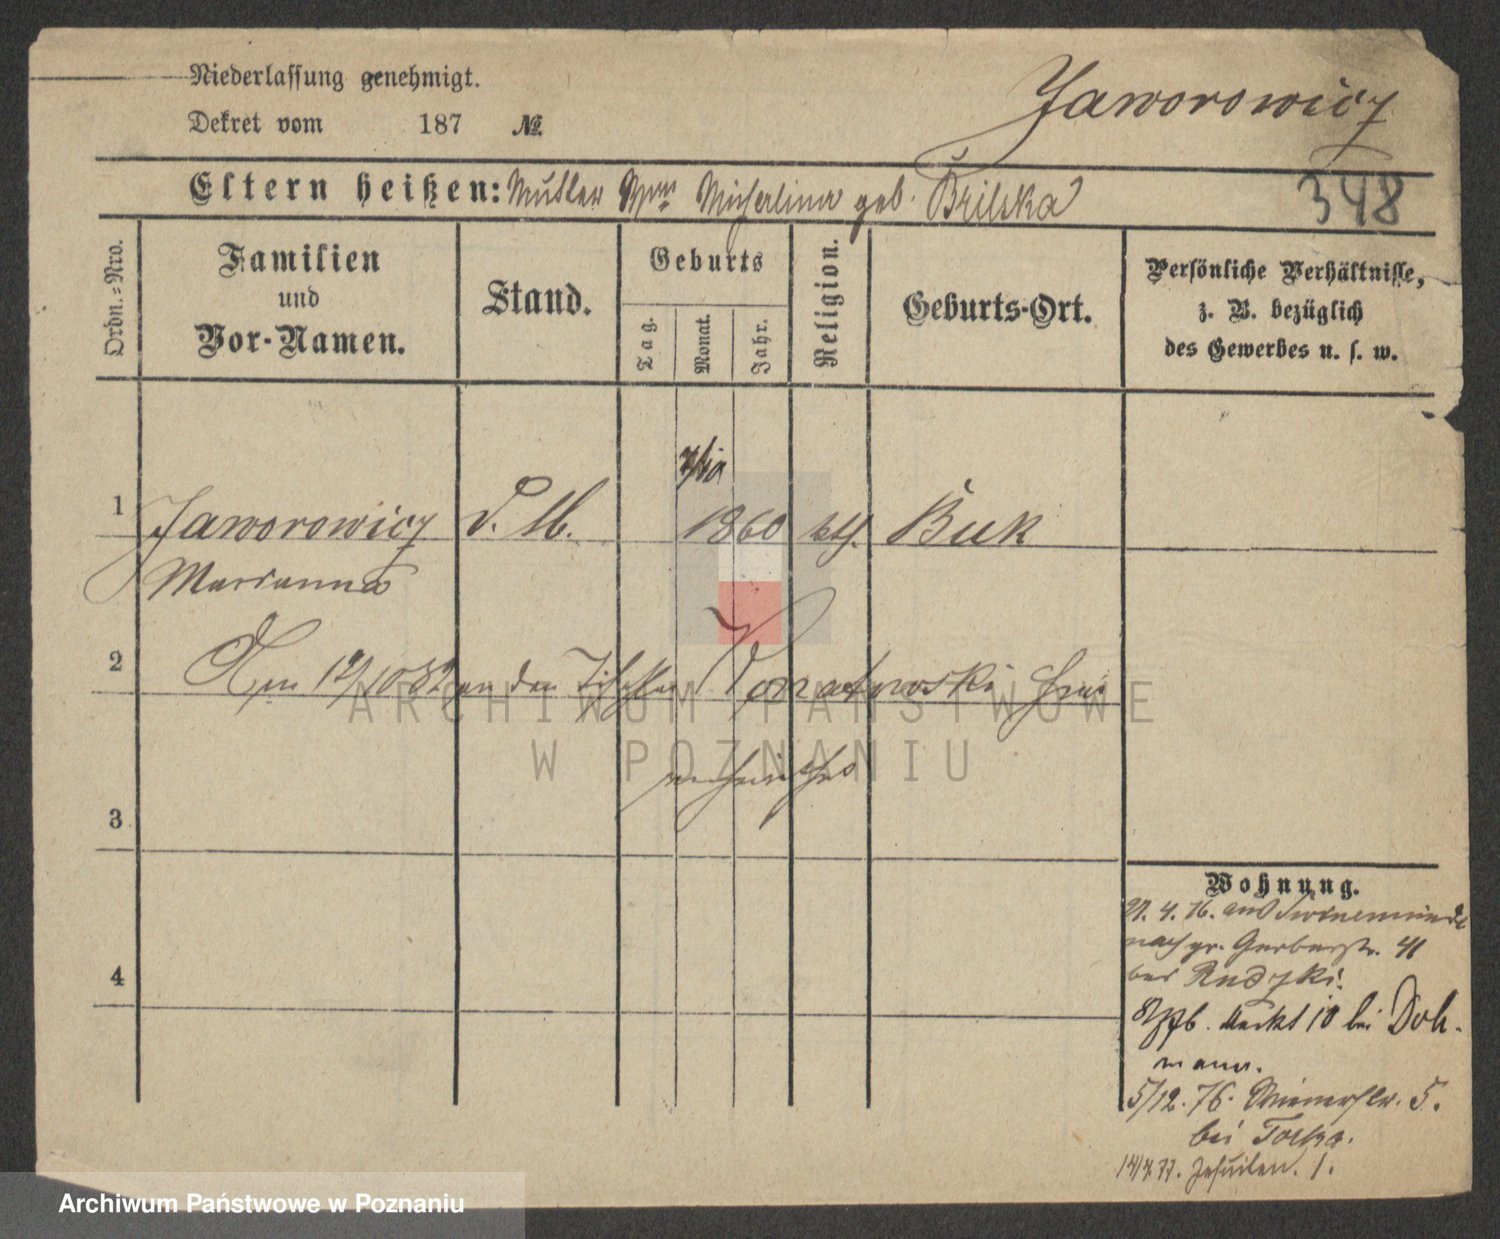 Niederlassung genehmigt.
Dekret vom 187 №.
Jaworowicz
348
Eltern heißen: Mutter Michalina geb. Bŕilska
Ordn.=Nro.
Familien
und
Vor-Namen.
Stand.
Geburts
Tag.
Monat.
Jahr.
Religion.
Geburts-Ort.
Persönliche Verhältnisse,
z. B. bezüglich
des Gewerbes u. s. w.
1
Jaworowicz D. M. 1860 kth. Buk
Marianna
2
an den Tischler hier
3
verheirathet
4
Wohnung.
4. 76. aus Swinemünde
nach gr. Gerberstr. 41
bei Rudzki.
Markt 10 bei Doh-
mann.
5/12. 76. Wienerstr. 5.
bei
77. Jesuiten. 1.
ARCHIWUM PAŃSTWOWE
W POZNANIU
Archiwum Państwowe w Poznaniu